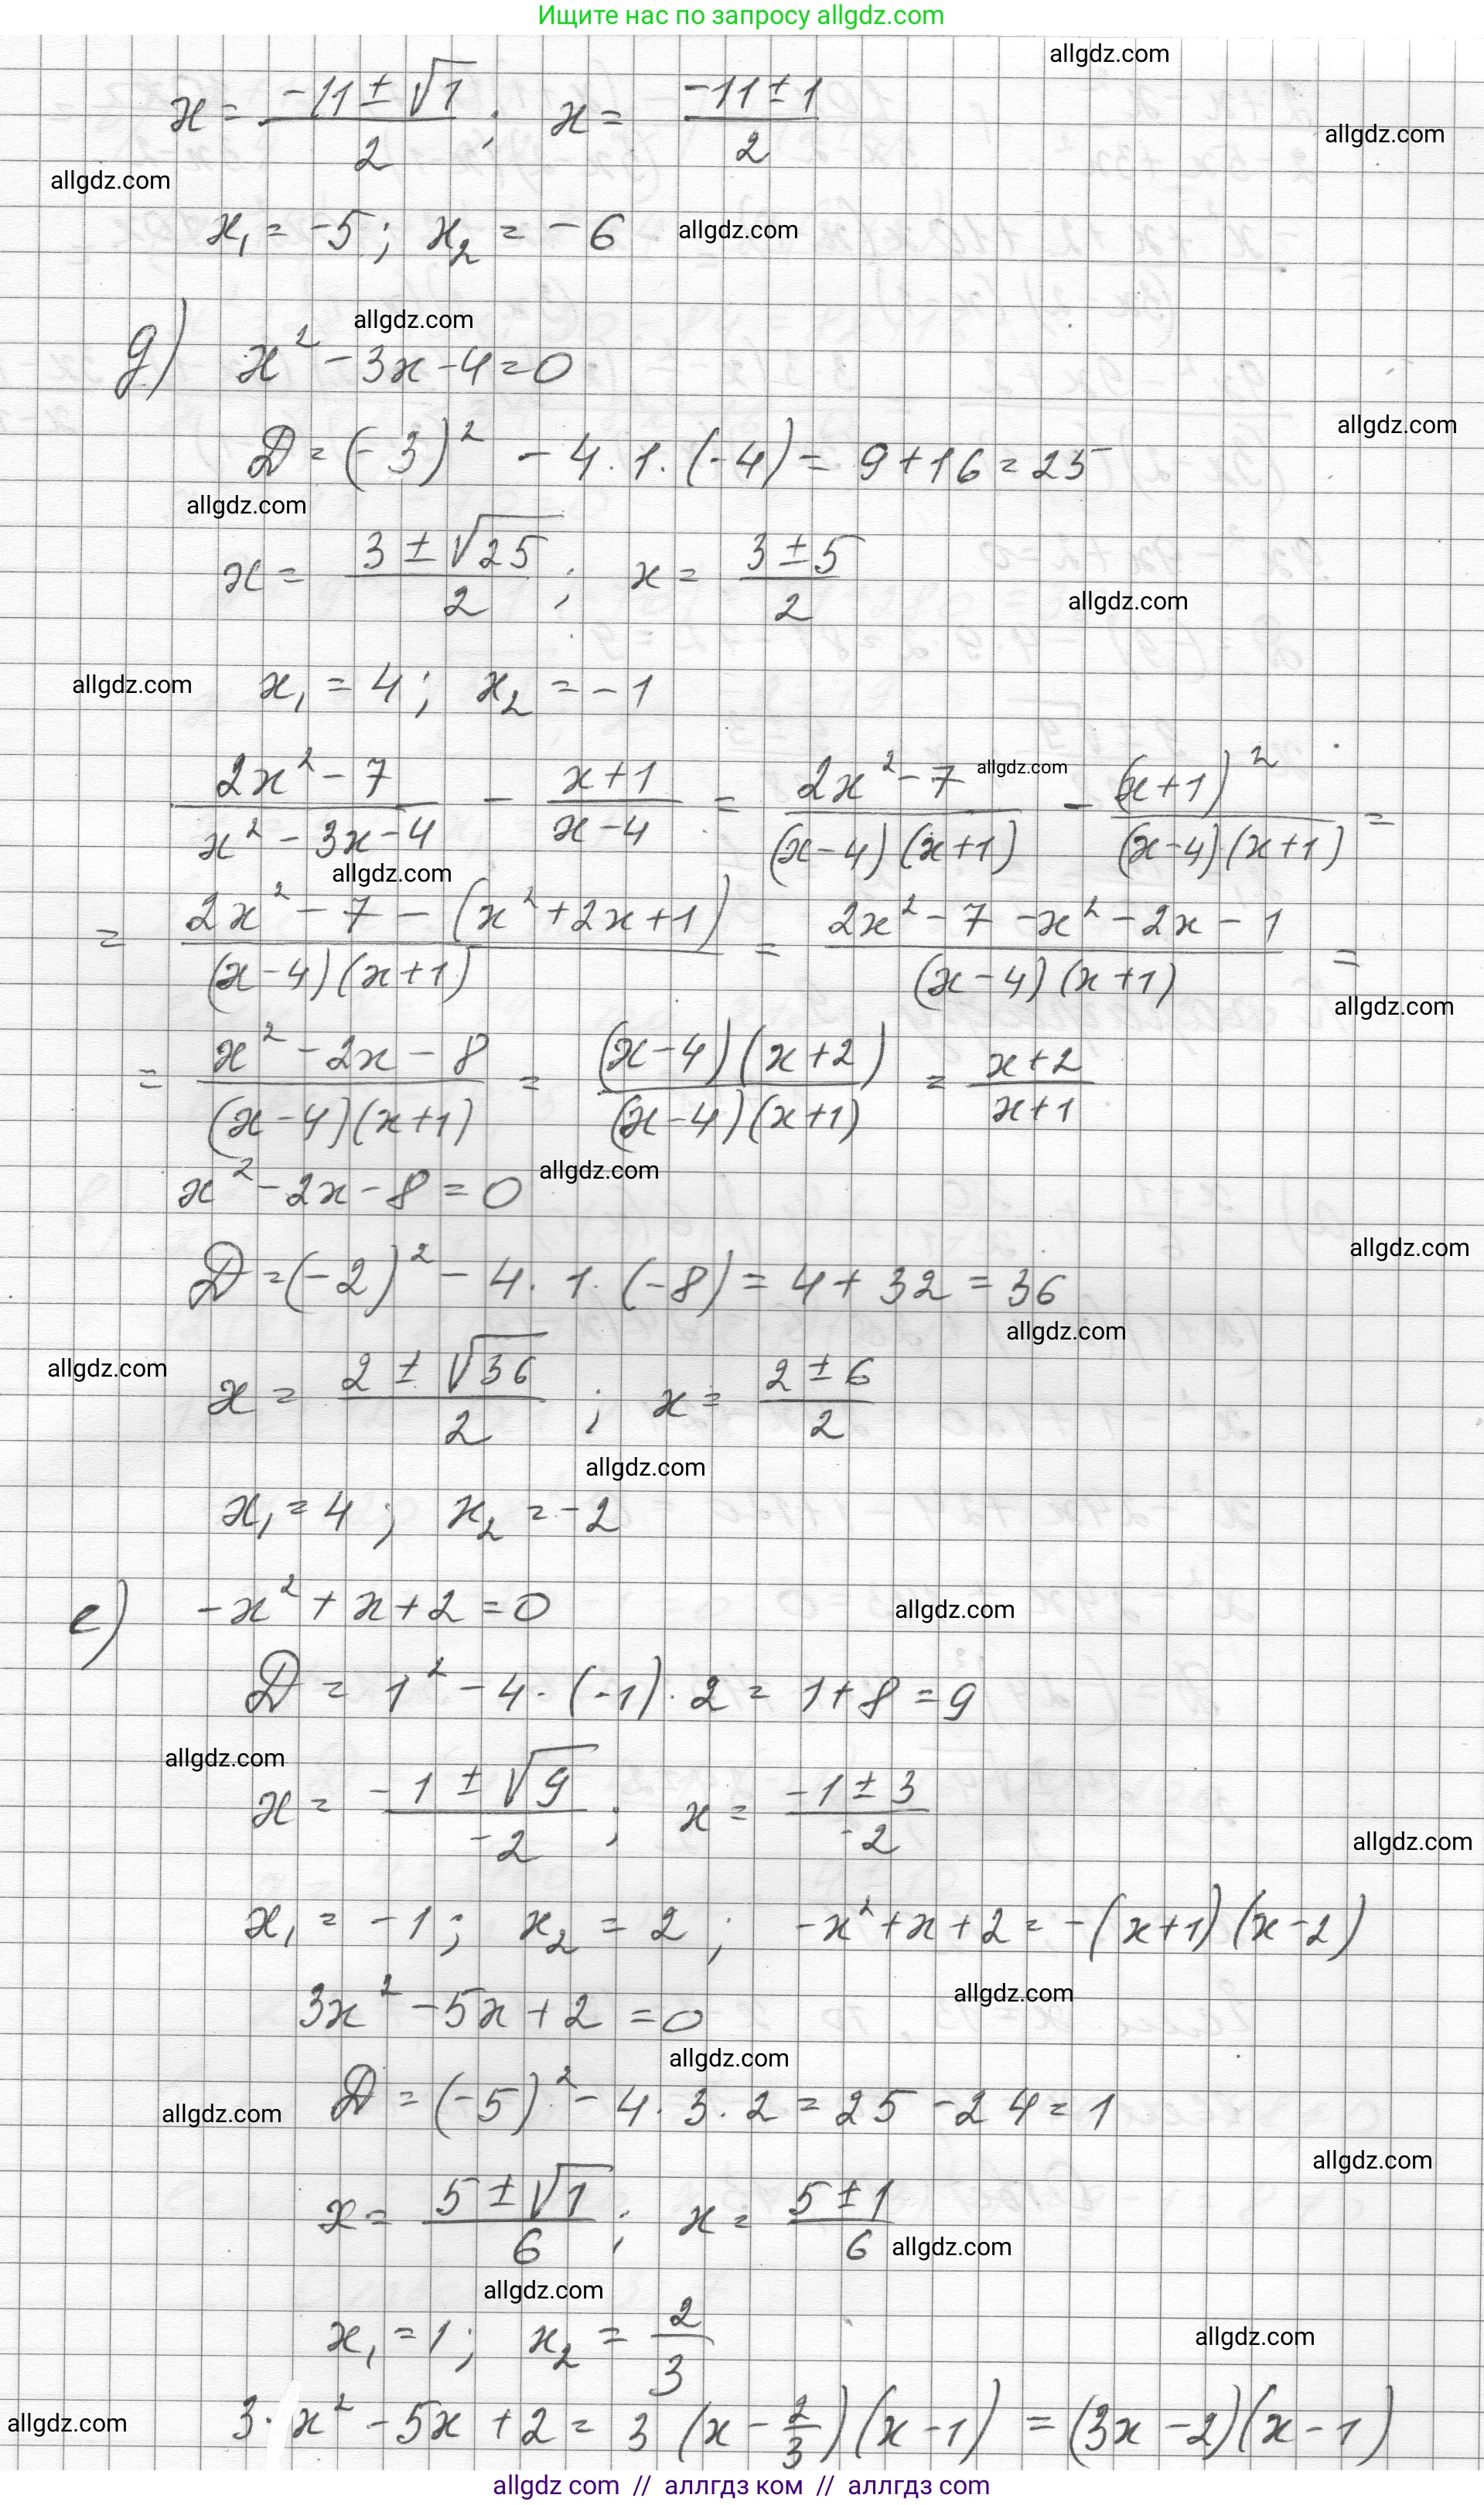 Ищите нас по запросу allgdz.com
allgdz.com
x = (-11 ± √1)/2 ; x = (-11 ± 1)/2
allgdz.com
allgdz.com
x₁ = -5 ; x₂ = -6 allgdz.com
allgdz.com
д) x² - 3x - 4 = 0
allgdz.com
D = (-3)² - 4 · 1 · (-4) = 9 + 16 = 25
allgdz.com
x = (3 ± √25)/2 ; x = (3 ± 5)/2
allgdz.com
allgdz.com x₁ = 4 ; x₂ = -1
(2x² - 7)/(x² - 3x - 4) - (x + 1)/(x - 4) = (2x² - 7)/((x - 4)(x + 1)) - (x + 1)²/((x - 4)(x + 1)) =
allgdz.com
allgdz.com
= (2x² - 7 - (x² + 2x + 1))/((x - 4)(x + 1)) = (2x² - 7 - x² - 2x - 1)/((x - 4)(x + 1)) =
allgdz.com
= (x² - 2x - 8)/((x - 4)(x + 1)) = ((x - 4)(x + 2))/((x - 4)(x + 1)) = (x + 2)/(x + 1)
x² - 2x - 8 = 0 allgdz.com
allgdz.com
D = (-2)² - 4 · 1 · (-8) = 4 + 32 = 36
allgdz.com
allgdz.com
x = (2 ± √36)/2 ; x = (2 ± 6)/2
allgdz.com
x₁ = 4 ; x₂ = -2
е) -x² + x + 2 = 0 allgdz.com
D = 1² - 4 · (-1) · 2 = 1 + 8 = 9
allgdz.com
x = (-1 ± √9)/(-2) ; x = (-1 ± 3)/(-2)
allgdz.com
x₁ = -1 ; x₂ = 2 ; -x² + x + 2 = -(x + 1)(x - 2)
allgdz.com
3x² - 5x + 2 = 0
allgdz.com
allgdz.com D = (-5)² - 4 · 3 · 2 = 25 - 24 = 1
allgdz.com
x = (5 ± √1)/6 ; x = (5 ± 1)/6 allgdz.com
allgdz.com
x₁ = 1 ; x₂ = 2/3
allgdz.com
allgdz.com 3 · x² - 5x + 2 = 3 (x - 2/3)(x - 1) = (3x - 2)(x - 1)
allgdz com // аллгдз ком // аллгдз com